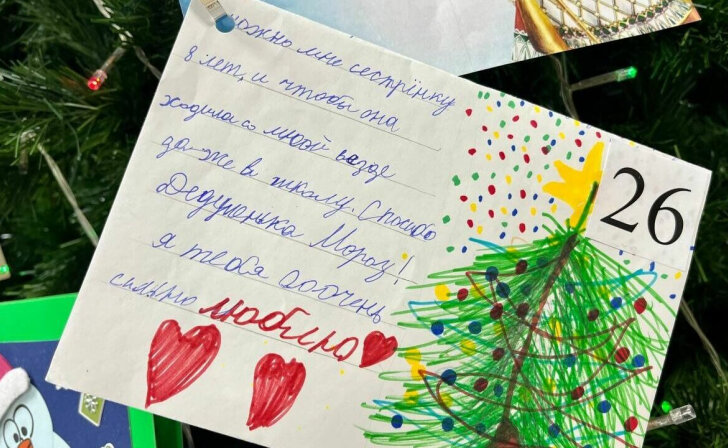 можно мне сестрінку
8 лет, и чтобы она
ходила со мной везде
да-же в школу. Спосибо
Дедушенька Мороз!
я тебя ооочень
сильно люблю
26